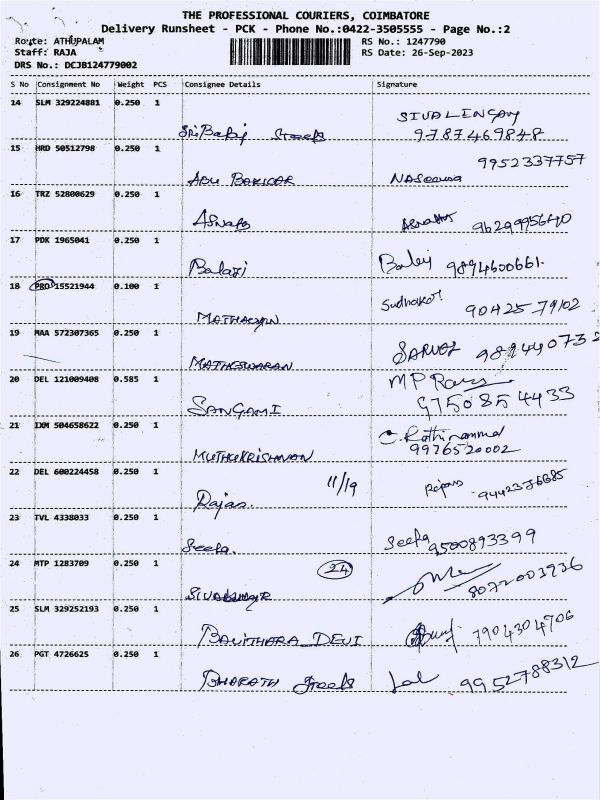 THE PROFESSIONAL COURIERS, COIMBATORE
Delivery Runsheet - PCK - Phone No.:0422-3505555 - Page No.:2
Route: ATHUPALAM RS No.: 1247790
Staff: RAJA RS Date: 26-Sep-2023
DRS No.: DCJB124779002
S No Consignment No Weight PCS Consignee Details Signature
14 SLM 329224881 0.250 1
SIVALENGAM
Sri Balaji Steels 9787469848
15 HRD 50512798 0.250 1
9952337757
ABU BAKKAR Naseema
16 TRZ 52800629 0.250 1
Asnafs 9629995640
17 PDK 1965041 0.250 1
Balaji Balaji 9894600661.
18 PRO 15521944 0.100 1
Sudhakar 9042579102
19 MAA 572307365 0.250 1
MATHESWARAN
20 DEL 121009408 0.585 1
SANGAMI 9750854433
21 IXM 504658622 0.250 1
MUTHUKRISHNAN 9976520002
22 DEL 600224458 0.250 1
11/19
Rajas.
23 TVL 4338033 0.250 1
Seefa. Seefa 9500893399
24 MTP 1283709 0.250 1
24
SIVAKUMAR
25 SLM 329252193 0.250 1
BAVITHARA DEVI 7904304706
26 PGT 4726625 0.250 1
BHARATH Steels Lal 9952788312